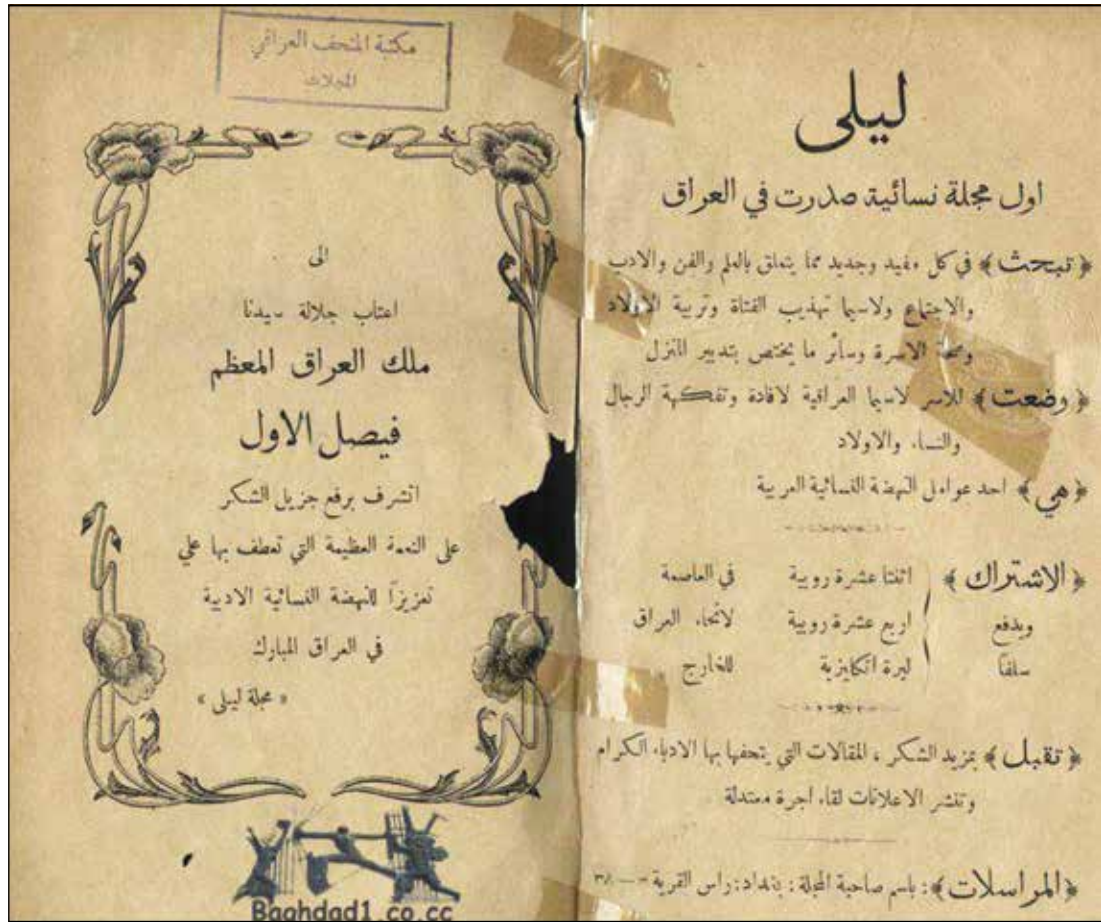 ليلى
اول مجلة نسائية صدرت في العراق
﴿تبحث﴾ في كل مفيد وجديد مما يتعلق بالعلم والفن والادب
والاجتماع ولاسيما تهذيب الفتاة وتربية الاولاد
وصحة الاسرة وسائر ما يختص بتدبير المنزل
﴿وضعت﴾ للاسر لاسيما العراقية لافادة وتفكهة الرجال
والنساء والاولاد
﴿هي﴾ احد عوامل النهضة النسائية العربية
﴿الاشتراك﴾ اثنتا عشرة روبية في العاصمة
ويدفع اربع عشرة روبية لانحاء العراق
سلفاً ليرة انكليزية للخارج
﴿تقبل﴾ بمزيد الشكر ، المقالات التي يتحفها بها الادباء الكرام
وتنشر الاعلانات لقاء اجرة معتدلة
﴿المراسلات﴾: باسم صاحبة المجلة : بغداد: راس القرية
مكتبة المتحف العراقي
المجلات
الى
اعتاب جلالة سيدنا
ملك العراق المعظم
فيصل الاول
اتشرف برفع جزيل الشكر
على النعمة العظيمة التي تعطف بها علي
تعزيزاً للنهضة النسائية الادبية
في العراق المبارك
« مجلة ليلى »
Baghdad1.co.cc